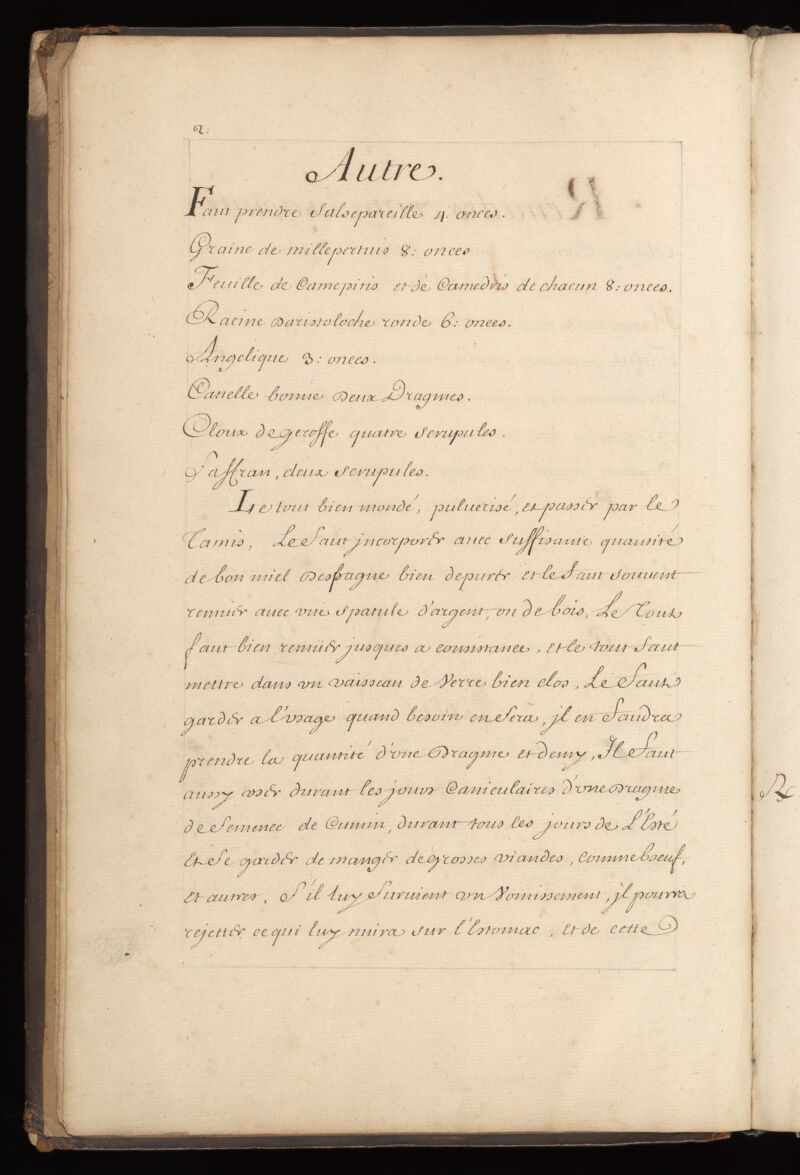 2:
Autre.
Faut prendre Salsepareille 4. onces.
Graine de millepertuis 8: onces
Feuille de Camepitis et de Camedris de chacun 8: onces.
Racine Daristoloche ronde 6: onces.
Angelique 3: onces.
Canelle bonne Deux Dragmes.
Cloux de geroffe quatre Scrupules.
Saffran, deux Scrupules.
Le tout bien mondé, puluerisé, et passér par le
Tamis, Le Faut jncorporér auec Suffisante quantité
de bon miel Despagne bien depurér et le Faut Souuent
remuér auec vne Spatule d'argent, ou de bois, Le Tout
faut bien remuér jusques a consistance, et le tout Faut
mettre dans vn vaisseau de Verre bien clos, Le Faut
gardér a l'vsage quand besoin en Sera, jl en Faudra
prendre la quantité d'vne Dragme et demy, Il Faut
aussy vsér durant les jours Caniculaires d'vne Dragme
de Semence de Cumin, durant tous les jours de L'Esté
Et Se gardér de mangér de grosses viandes, Comme boeuf,
Et autres, S'il luy Suruient vn Vomissement, jl pourra
rejettér ce qui luy nuira Sur l'Estomac, Et de cette
R